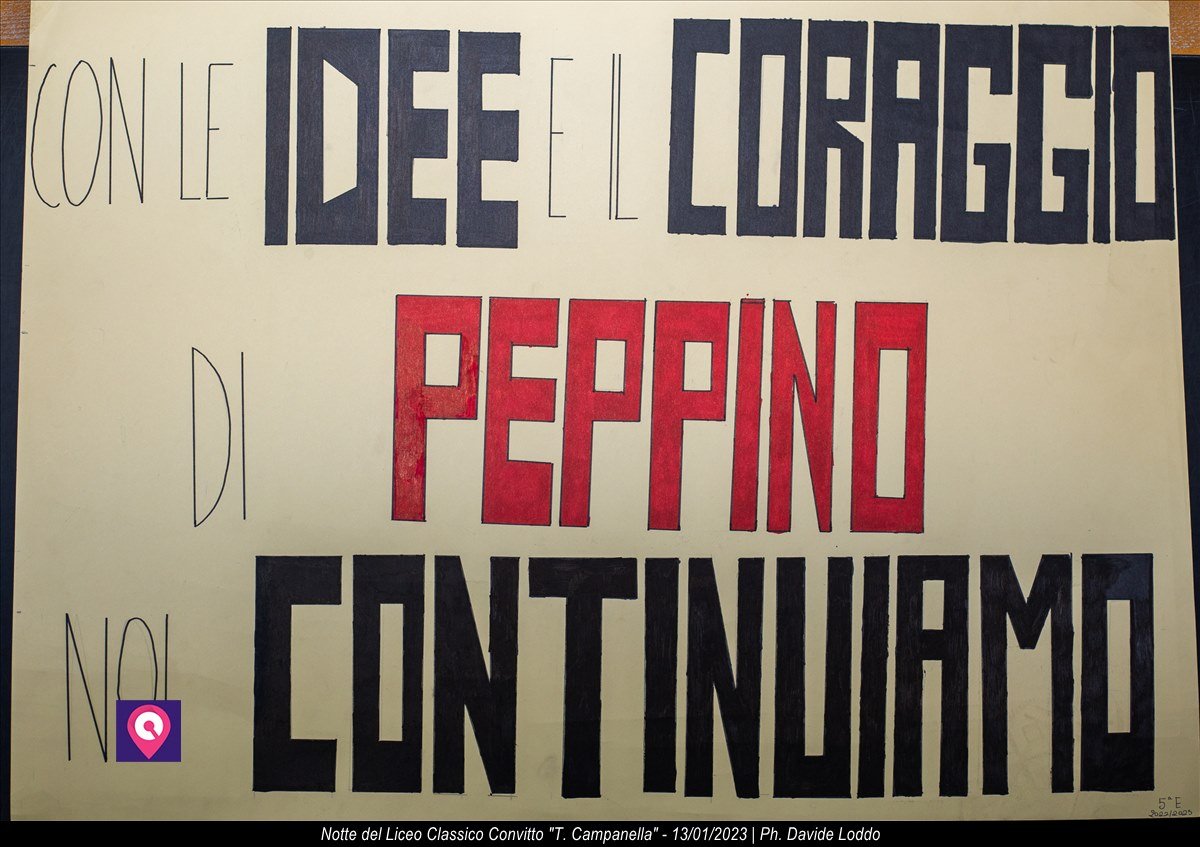 CON LE IDEE E IL CORAGGIO
DI PEPPINO
NOI CONTINUIAMO
5ª E
2022/2023
Notte del Liceo Classico Convitto "T. Campanella" - 13/01/2023 | Ph. Davide Loddo